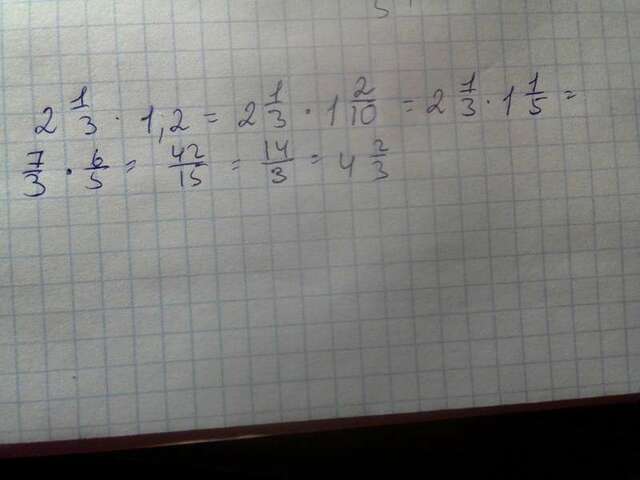 2 1/3 · 1,2 = 2 1/3 · 1 2/10 = 2 1/3 · 1 1/5 =
7/3 · 6/5 = 42/15 = 14/3 = 4 2/3